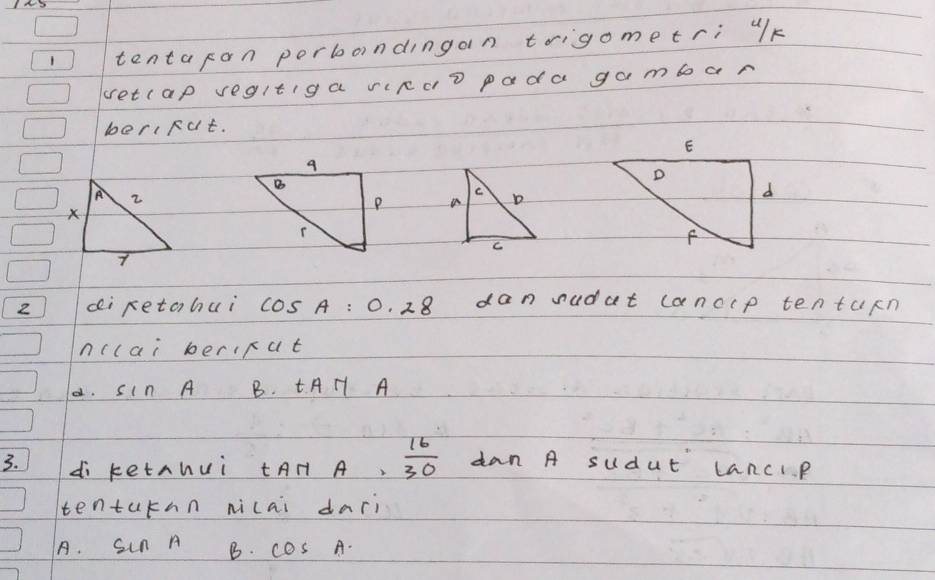 1 tentukan perbandingan trigometri u/k
setiap segitiga siku² pada gambar
berikut.
A 2 x 7
q B p r
a c b c
E D d F
2 diketahui cos A : 0.28 dan sudut lancip tentukn
nilai berikut
a. sin A B. tAN A
3. diketahui tAN A, 16/30 dan A sudut lancip
tentukan nilai dari
A. Sin A B. cos A.